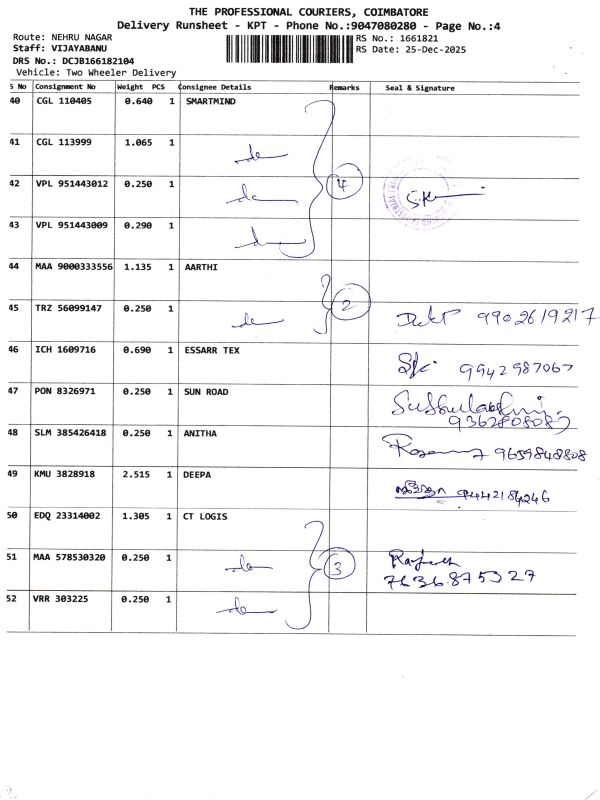 THE PROFESSIONAL COURIERS, COIMBATORE
Delivery Runsheet - KPT - Phone No.:9047080280 - Page No.:4
Route: NEHRU NAGAR RS No.: 1661821
Staff: VIJAYABANU RS Date: 25-Dec-2025
DRS No.: DCJB166182104
Vehicle: Two Wheeler Delivery
S No Consignment No Weight PCS Consignee Details Remarks Seal & Signature
40 CGL 110405 0.640 1 SMARTMIND
41 CGL 113999 1.065 1
42 VPL 951443012 0.250 1 4
43 VPL 951443009 0.290 1
44 MAA 9000333556 1.135 1 AARTHI
45 TRZ 56099147 0.250 1 2 9902619217
46 ICH 1609716 0.690 1 ESSARR TEX 9942987067
47 PON 8326971 0.250 1 SUN ROAD
48 SLM 385426418 0.250 1 ANITHA 9659848808
49 KMU 3828918 2.515 1 DEEPA 9442184246
50 EDQ 23314002 1.305 1 CT LOGIS
51 MAA 578530320 0.250 1 3 Rajesh
52 VRR 303225 0.250 1